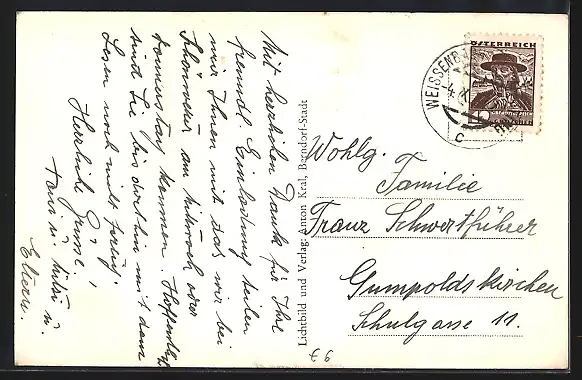 Mit herzlichen Dank für Ihre
freundl. Einladung teilen
wir Ihnen mit das wir bei
Schönwetter am Mittwoch oder
Donnerstag kommen. Hoffentlich
sind Sie bis dorthin mit dem
Lesen noch nicht fertig.
Herzliche Grüsse!
u.
Eltern.
Lichtbild und Verlag Anton Kral, Berndorf-Stadt
ÖSTERREICH
WEISSENB
Wohlg.
Familie
Franz Schwertführer
Gumpoldskirchen
Schulgasse 11.